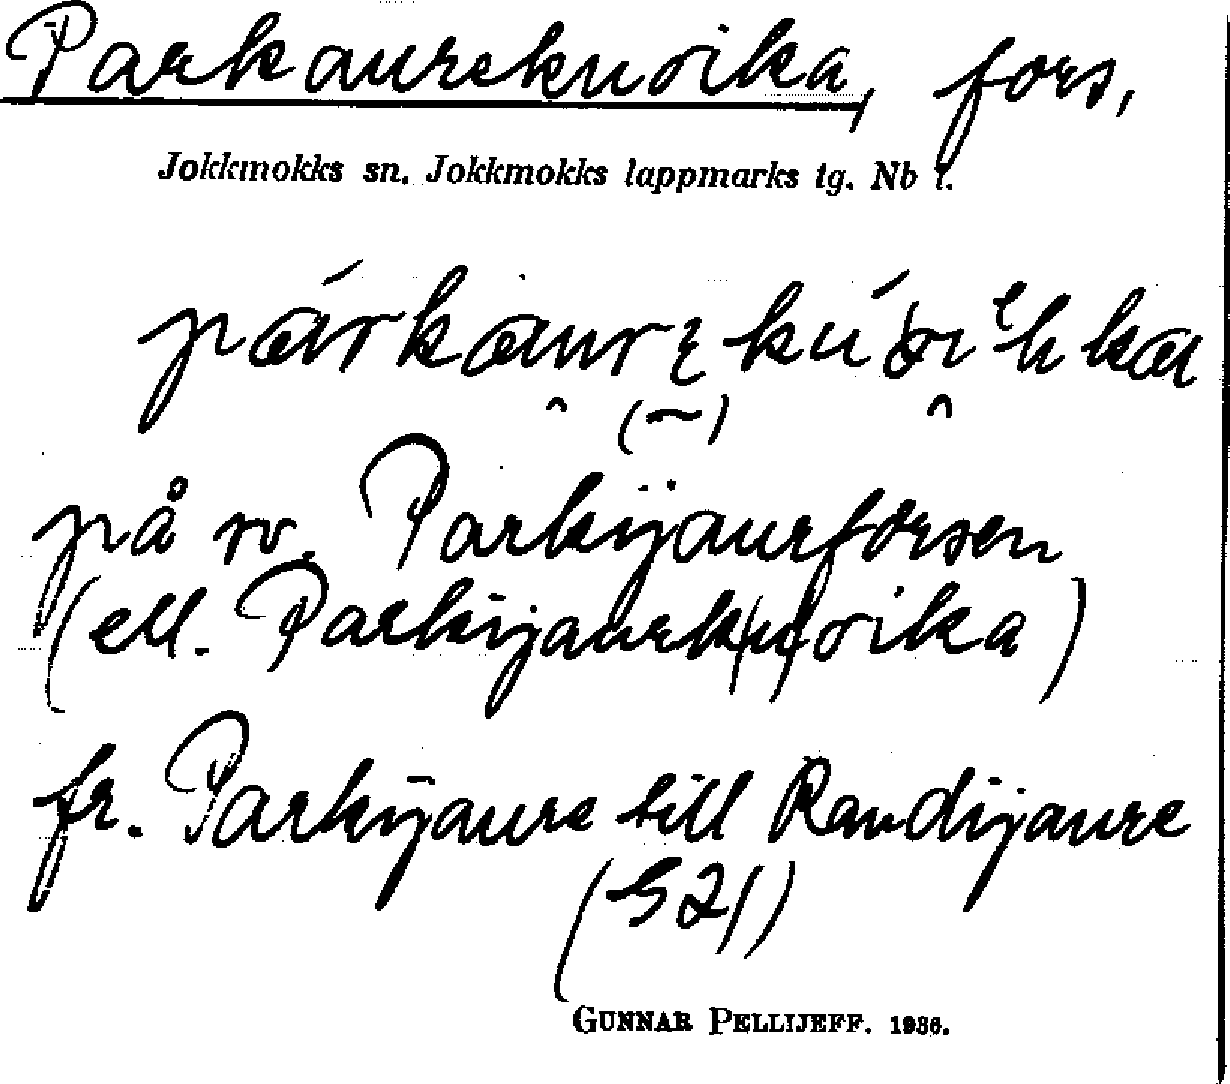 Parkaurekuoika, fors,
Jokkmokks sn. Jokkmokks lappmarks tg. Nb l.
på sv. Parkijaurforsen
(ell. Parkijaurek(u)oika)
fr. Parkijaure till Randijaure
(521)
GUNNAR PELLIJEFF. 1936.